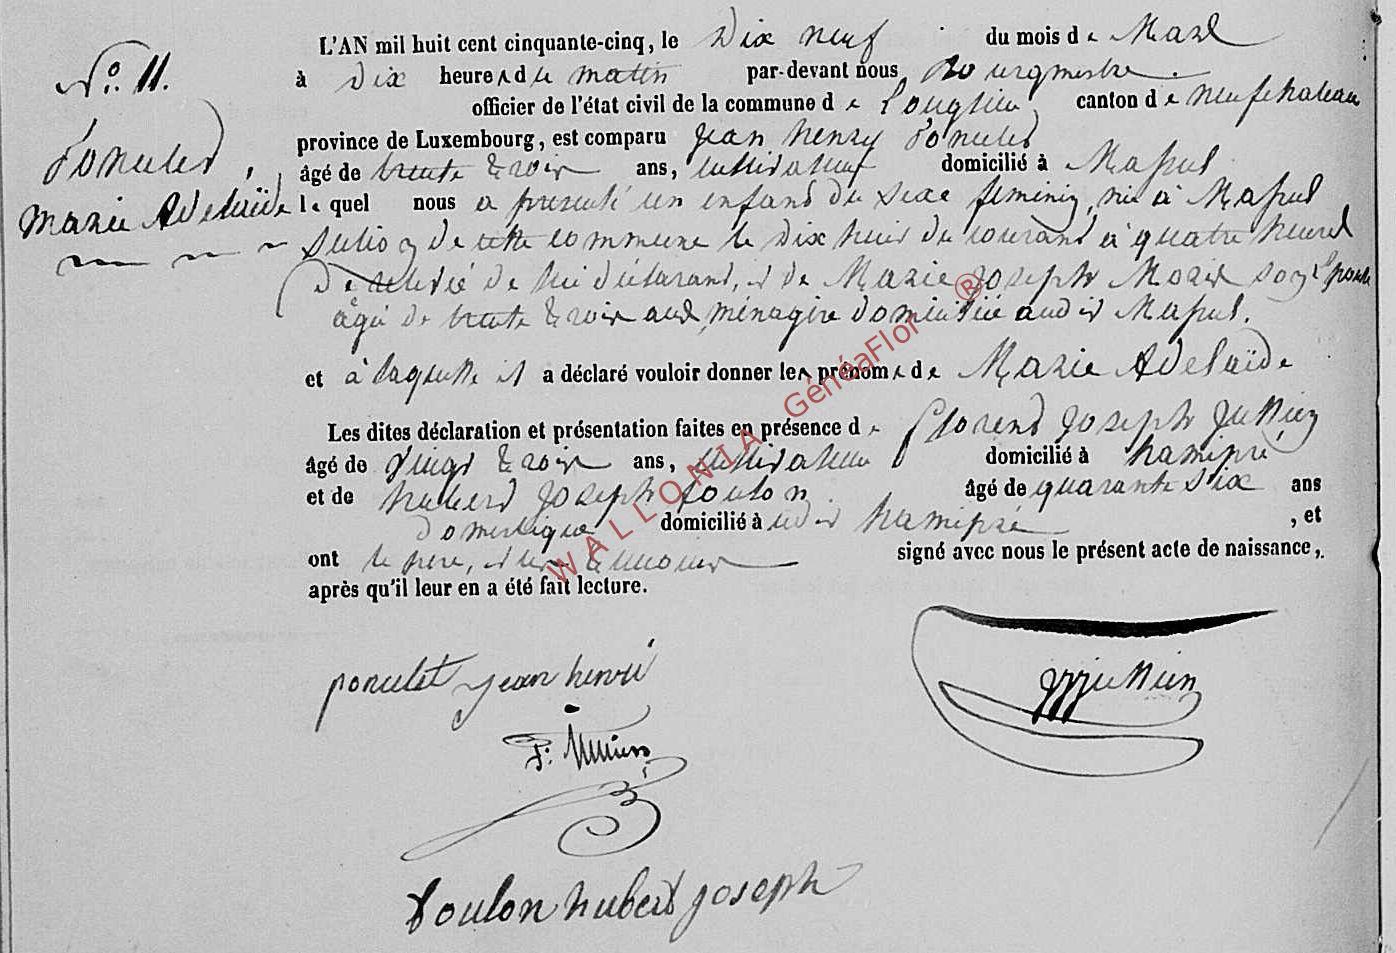 L'AN mil huit cent cinquante-cinq, le Dix neuf du mois de Mars
N° 11.
à Dix heures du matin par-devant nous, Bourgmestre
officier de l'état civil de la commune de Longlier canton de neufchateau
province de Luxembourg, est comparu Jean henry Poncelet
Poncelet,
âgé de trente trois ans, cultivateur domicilié à Massul
Marie Adelaïde
le quel nous a presenté un enfant du sexe feminin, née à Massul
section de cette commune le dix huit du courant à quatre heures
de lui déclarant, et de Marie Joseph son Epouse
âgée de trente trois ans, ménagère domiciliée audit Massul.
et à laquelle il a déclaré vouloir donner les prénoms de Marie Adelaïde
Les dites déclaration et présentation faites en présence de Florent Joseph Jullien
âgé de vingt trois ans, cultivateur domicilié à hamipré
et de hubert Joseph Toulon âgé de quarante six ans
domestique domicilié à udit hamipré , et
ont le père, et les témoins signé avec nous le présent acte de naissance,
après qu'il leur en a été fait lecture.
poncelet jean henri
Jullien
toulon hubert joseph
WALLONIA GénéaFlor ®